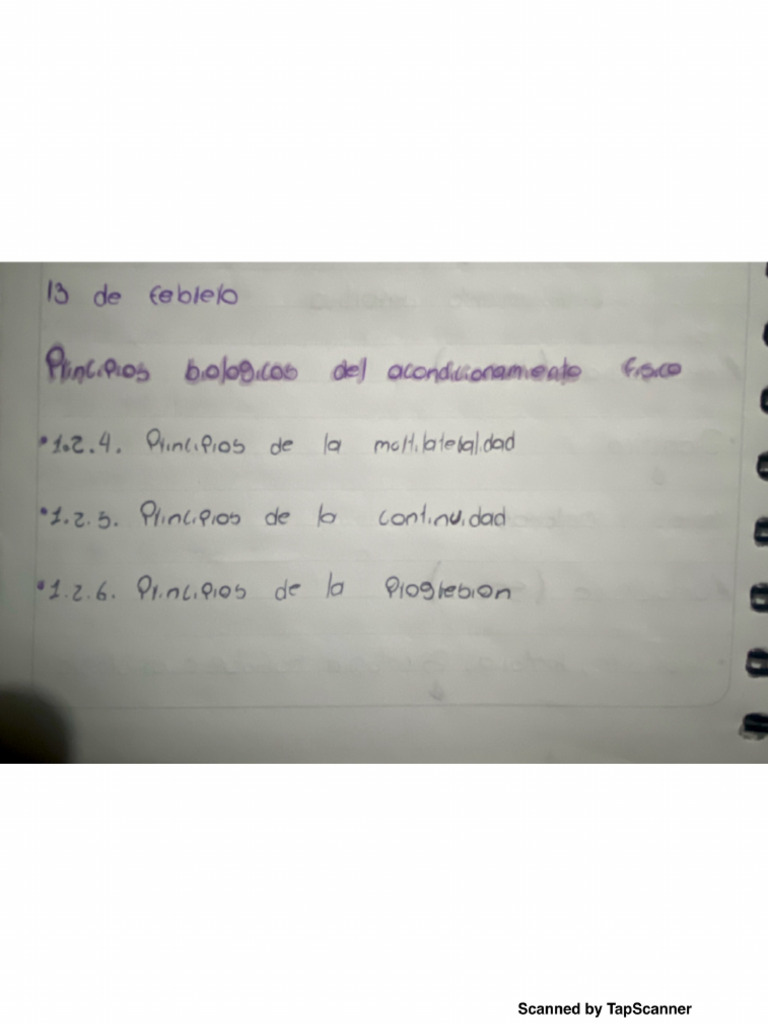 13 de febrero
Principios biologicos del acondicionamiento fisico
• 1.2.4. Principios de la multilateralidad
• 1.2.5. Principios de la continuidad
• 1.2.6. Principios de la Progresion
Scanned by TapScanner